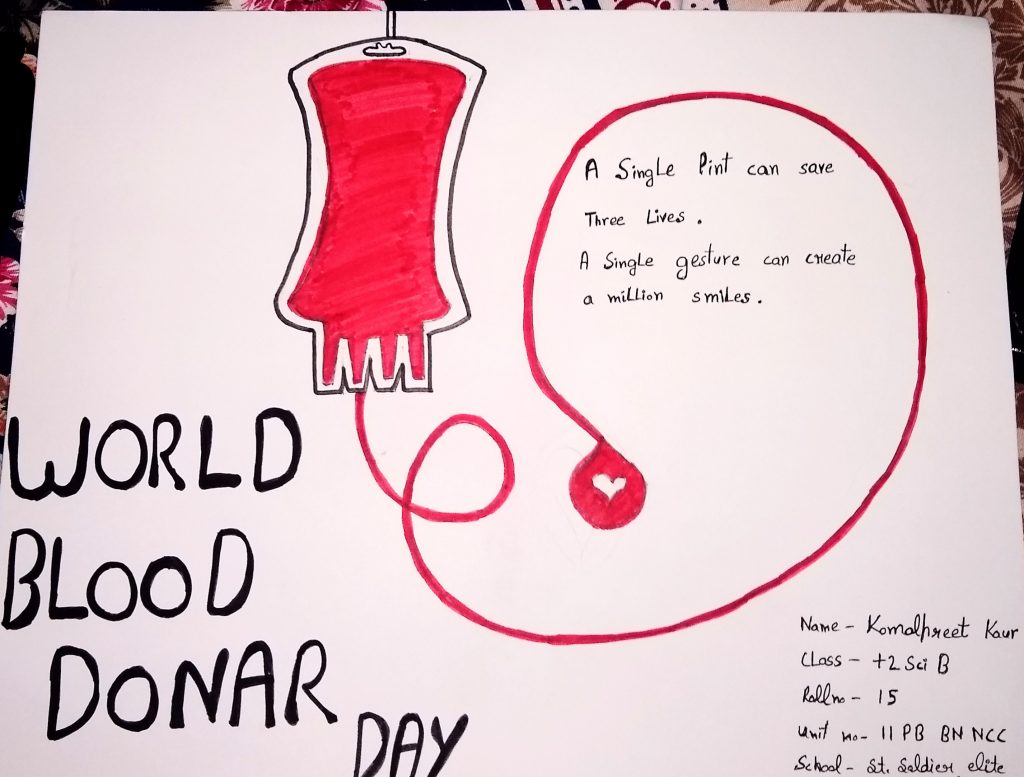 A Single Pint can save
Three Lives.
A Single gesture can create
a million smiles.
WORLD
BLOOD
DONAR
DAY
Name - Komalpreet Kaur
Class - +2 Sci B
Rollno - 15
Unit no- 11 PB BN NCC
School- St. Soldier elite